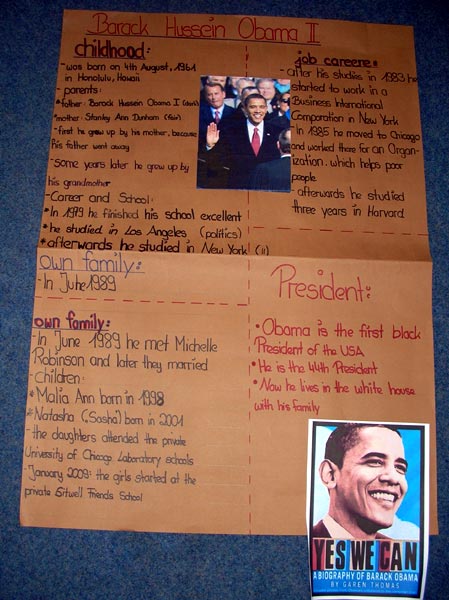 Barack Hussein Obama II
childhood:
- was born on 4th August, 1961
in Honolulu, Hawaii
- parents:
*father: Barack Hussein Obama I
*mother: Stanley Ann Dunham
- first he grew up by his mother, because
his father went away
- some years later he grew up by
his grandmother
- Career and School:
* In 1979 he finished his school excellent
* he studied in Los Angeles (politics)
* afterwards he studied in New York
job careere:
- after his studies in 1983 he
started to work in a
Business International
Corporation in New York
- In 1985 he moved to Chicago
and worked there for an Organ-
ization, which helps poor
people
- afterwards he studied
three years in Harvard
own family:
- In June 1989
own family:
- In June 1989 he met Michelle
Robinson and later they married
- Children:
* Malia Ann born in 1998
* Natasha (Sasha) born in 2001
- the daughters attended the private
University of Chicago Laboratory schools
- January 2009: the girls started at the
private Sitwell Friends School
President:
• Obama is the first black
President of the USA
• He is the 44th President
• Now he lives in the white house
with his family
YES WE CAN
A BIOGRAPHY OF BARACK OBAMA
BY GAREN THOMAS